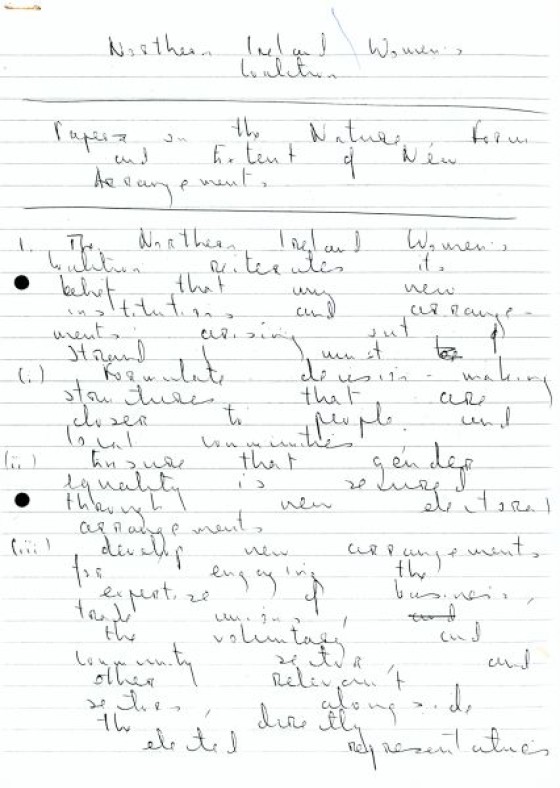 Northern Ireland Women's
Coalition
Papers on the Nature, Form
and Extent of New
Arrangements
1. The Northern Ireland Women's
Coalition reiterates its
belief that any new
institutions and arrange-
ments arising out of
Strand 1 must
(i) Formulate decision-making
structures that are
closer to people and
local communities
(ii) Ensure that gender
equality is secured
through new electoral
arrangements
(iii) develop new arrangements
for engaging the
expertise of business,
trade unions, and
the voluntary and
community sector, and
other relevant
sectors, alongside
the directly
elected representatives